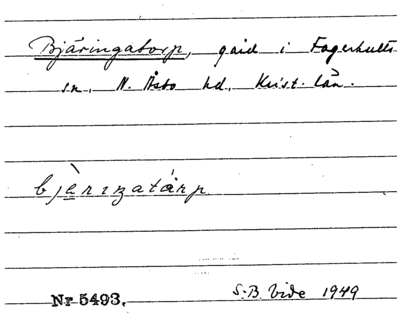 Bjäringatorp, gård i Fagerhults
sn, N. Åsbo hd, Krist. län.
bjὲrɪŋatȧrp
Nr 5493. S.B. Vide 1949